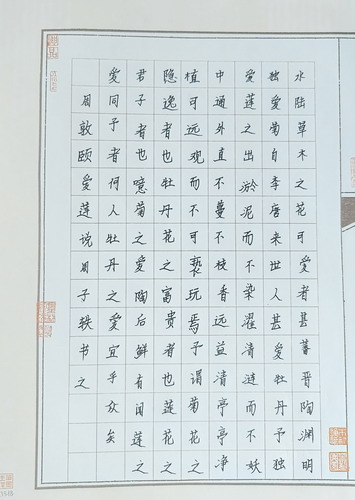 水陆草木之花可爱者甚蕃晋陶渊明
独爱菊自李唐来世人甚爱牡丹予独
爱莲之出淤泥而不染濯清涟而不妖
中通外直不蔓不枝香远益清亭亭净
植可远观而不可亵玩焉予谓菊花之
隐逸者也牡丹花之富贵者也莲花之
君子者也噫菊之爱陶后鲜有闻莲之
爱同予者何人牡丹之爱宜乎众矣
周敦颐爱莲说周子轶书之